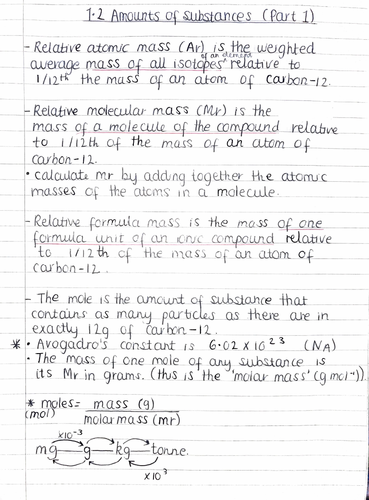 1.2 Amounts of substances (Part 1)
- Relative atomic mass (Ar) is the weighted
average mass of all isotopes of an element relative to
1/12th the mass of an atom of carbon-12.
- Relative molecular mass (Mr) is the
mass of a molecule of the compound relative
to 1/12th of the mass of an atom of
carbon-12.
• calculate mr by adding together the atomic
masses of the atoms in a molecule.
- Relative formula mass is the mass of one
formula unit of an ionic compound relative
to 1/12th of the mass of an atom of
carbon-12.
- The mole is the amount of substance that
contains as many particles as there are in
exactly 12g of carbon-12.
* • Avogadro's constant is 6.02 x 10²³ (NA)
• The mass of one mole of any substance is
its Mr in grams. (this is the 'molar mass' (g mol⁻¹))
* moles = mass (g)
(mol) molar mass (mr)
x10⁻³
mg g kg tonne.
x10³